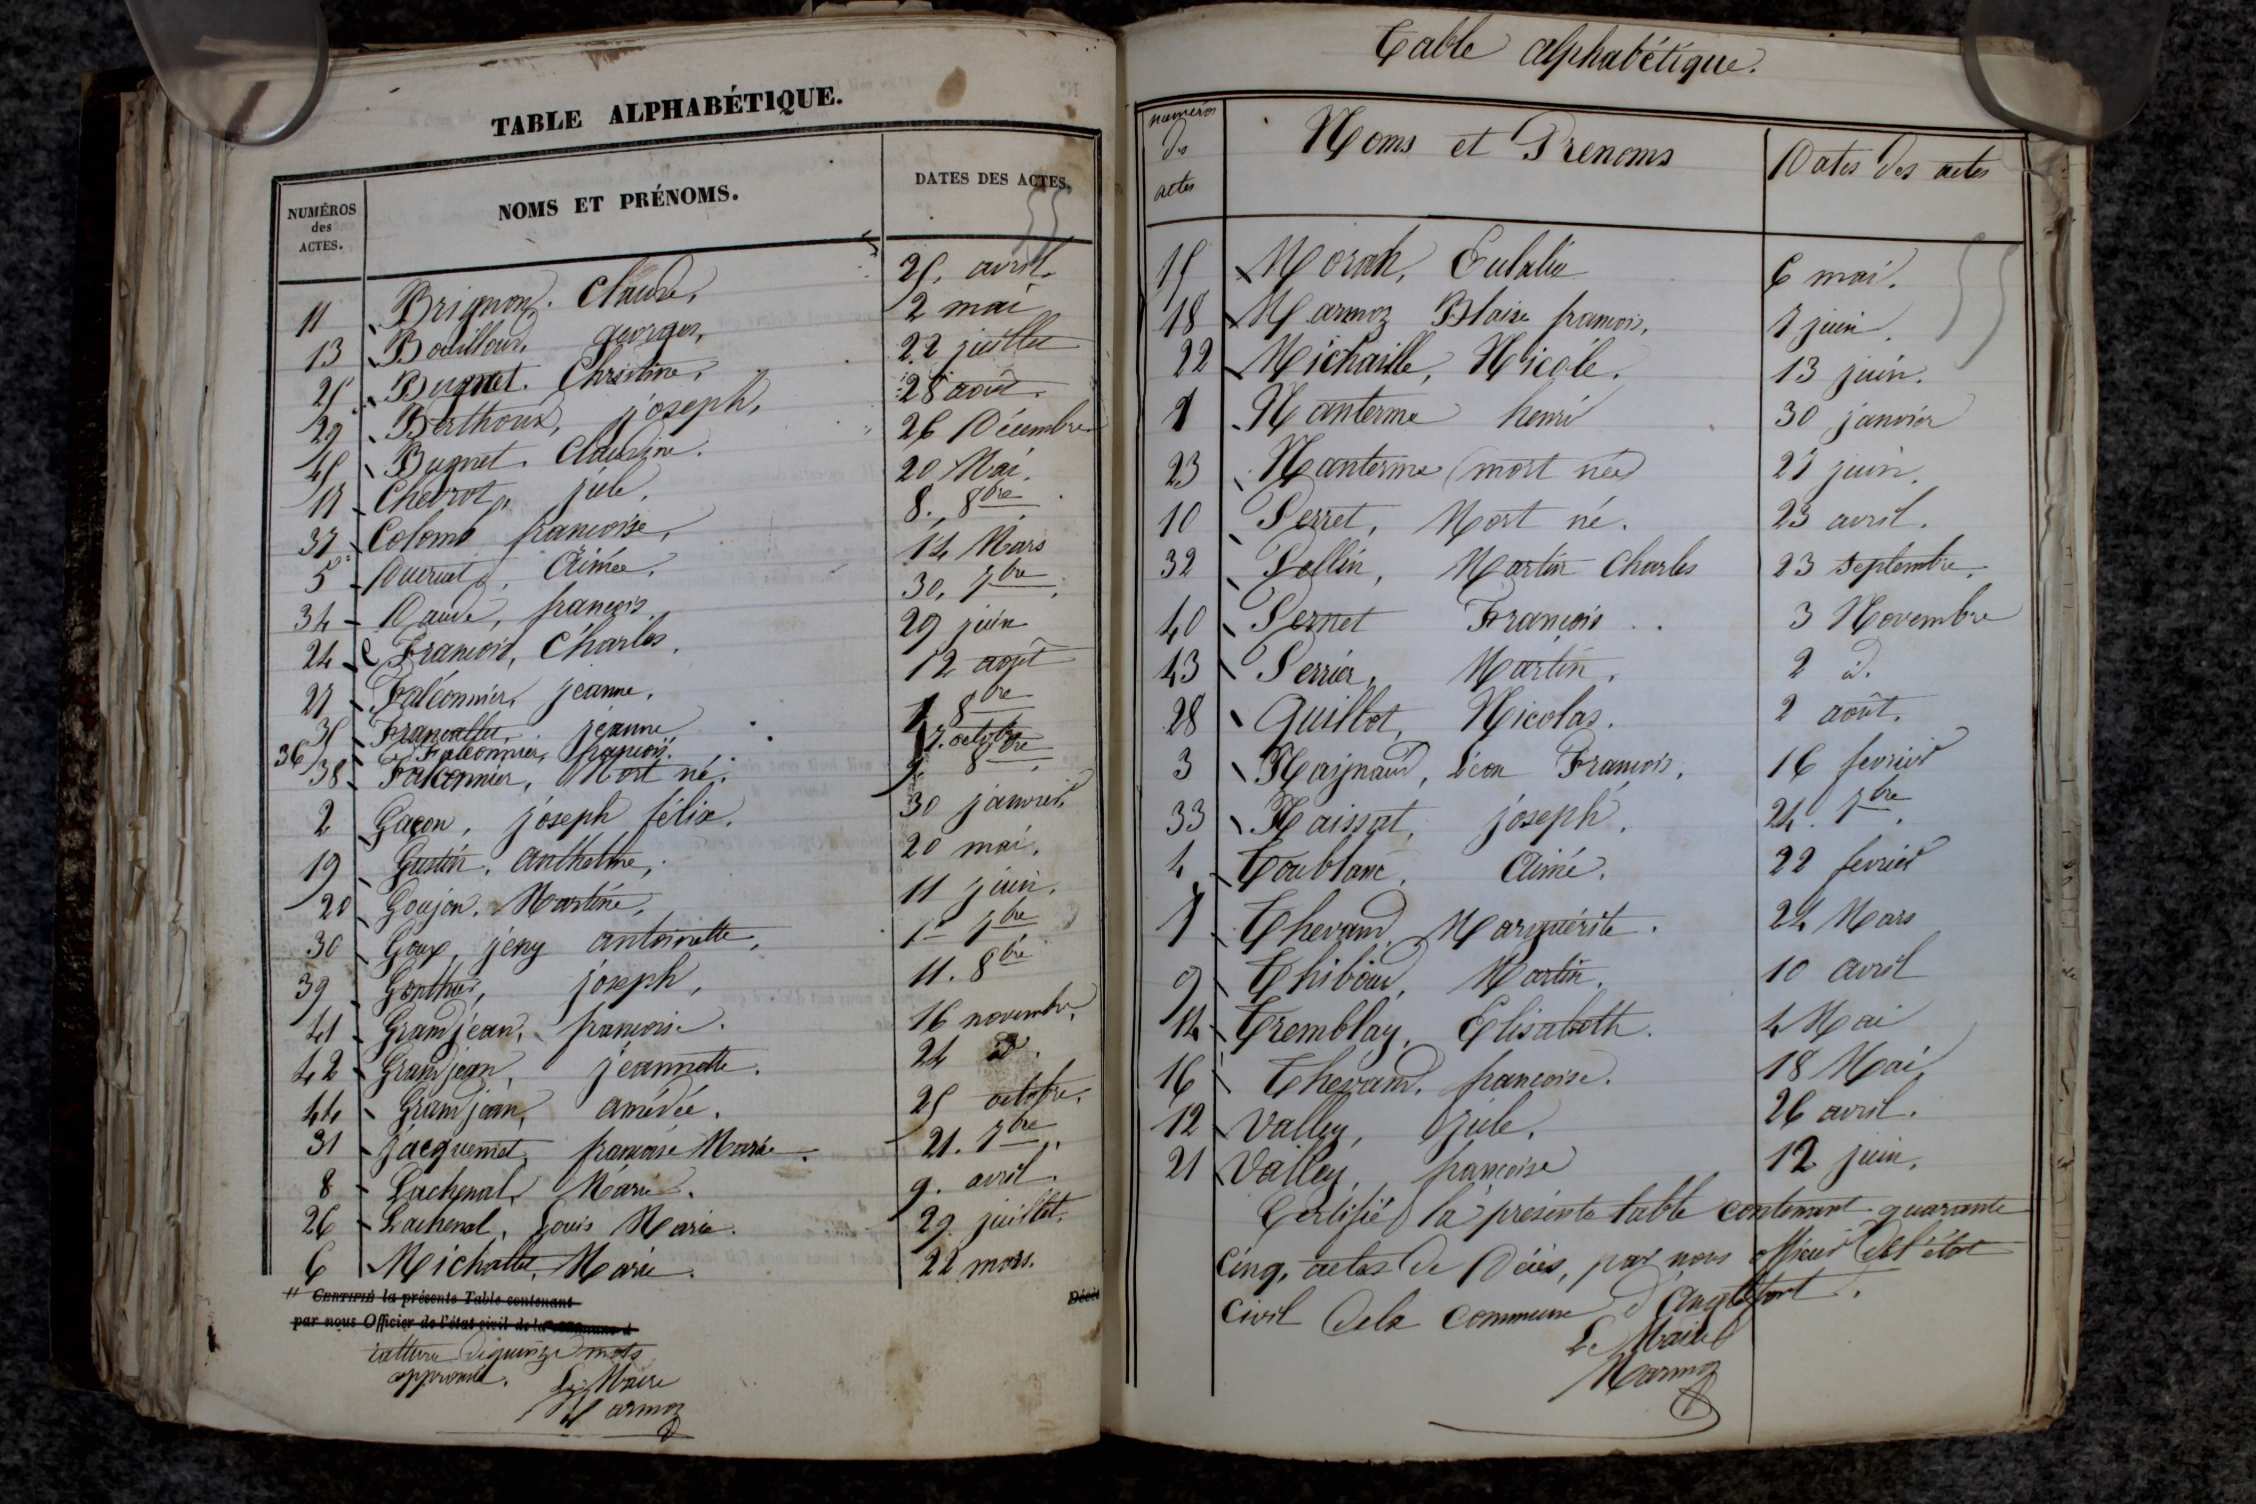 TABLE ALPHABÉTIQUE.
NUMÉROS des ACTES. NOMS ET PRÉNOMS. DATES DES ACTES.
55
11 Brignon, Claude, 25, avril.
13 Bouilloud, georges, 2 mai
25 Bugnet. Christine, 22 juillet
29 Berthoux, joseph, 28 août.
45 Bugnet. Claudine. 26 Décembre
17 Chevrot, jule, 20 Mai.
37 Colomb françoise, 8. 8bre
5 Aimée. 14 Mars
34 Daude, françois. 30, 7bre
24 François, Charles, 29 juin
27 Falconnier, jeanne, 12 août
35 jeanne, 7 8bre
36 Falconnier, françois. 7. octobre
38 Falconnier, Mort né. 9. 8bre
2 Gaçon, joseph félix. 30 janvier
19 Gustin, anthelme, 20 mai.
20 Goujon. Martine, 11 juin.
30 Goux, jeny antoinette, 1er 7bre
39 Gonthier, joseph, 11. 8bre
41 Grandjean, françoise. 16 novembre,
42 Grandjean, jeannette. 24 d.
44 Grandjean, amédée. 25 octobre.
31 Jacquemet, françoise Marie. 21. 7bre
8 Lachenal, Marie. 9. avril.
26 Lachenal, Louis Marie. 29 juillet.
6 Michallet, Marie. 22 mars.
" CERTIFIÉ la présente Table contenant Décès
par nous Officier de l'état civil de la commune d
rature de quinze mots
approuvée. Le Maire
Marmoz
Table alphabétique.
numéros des actes Noms et Prenoms Dates des actes
55
15 Morah, Eulalie 6 mai.
18 Marmoz Blaise françois, 7 juin.
22 Michaille, Nicole. 13 juin.
1 Nanterme henri 30 janvier
23 Nanterme (mort née) 27 juin.
10 Perret, Mort né. 23 avril.
32 Pellin, Martin Charles 23 septembre.
40 Pernet François.. 3 Novembre
43 Perrier, Martin. 2 d.
28 Quillot, Nicolas. 2 août.
3 Raignaud, Léon François, 16 fevrier
33 Raissat, joseph, 24. 7bre,
4 Toublanc, Aimé. 22 fevrier
7 Thevand, Marguérite. 24 Mars
9 Thiboud, Martin, 10 avril
14 Tremblay, Elisabeth. 4 Mai
16 Thevand, françoise. 18 Mai
12 Valley, jule. 26 avril.
21 Valley, françoise 12 juin,
Certifié la présente table contenant quarante
cinq, actes de Décès, par nous officier de l'état
civil de la commune d'Anglefort.
Le Maire
Marmoz